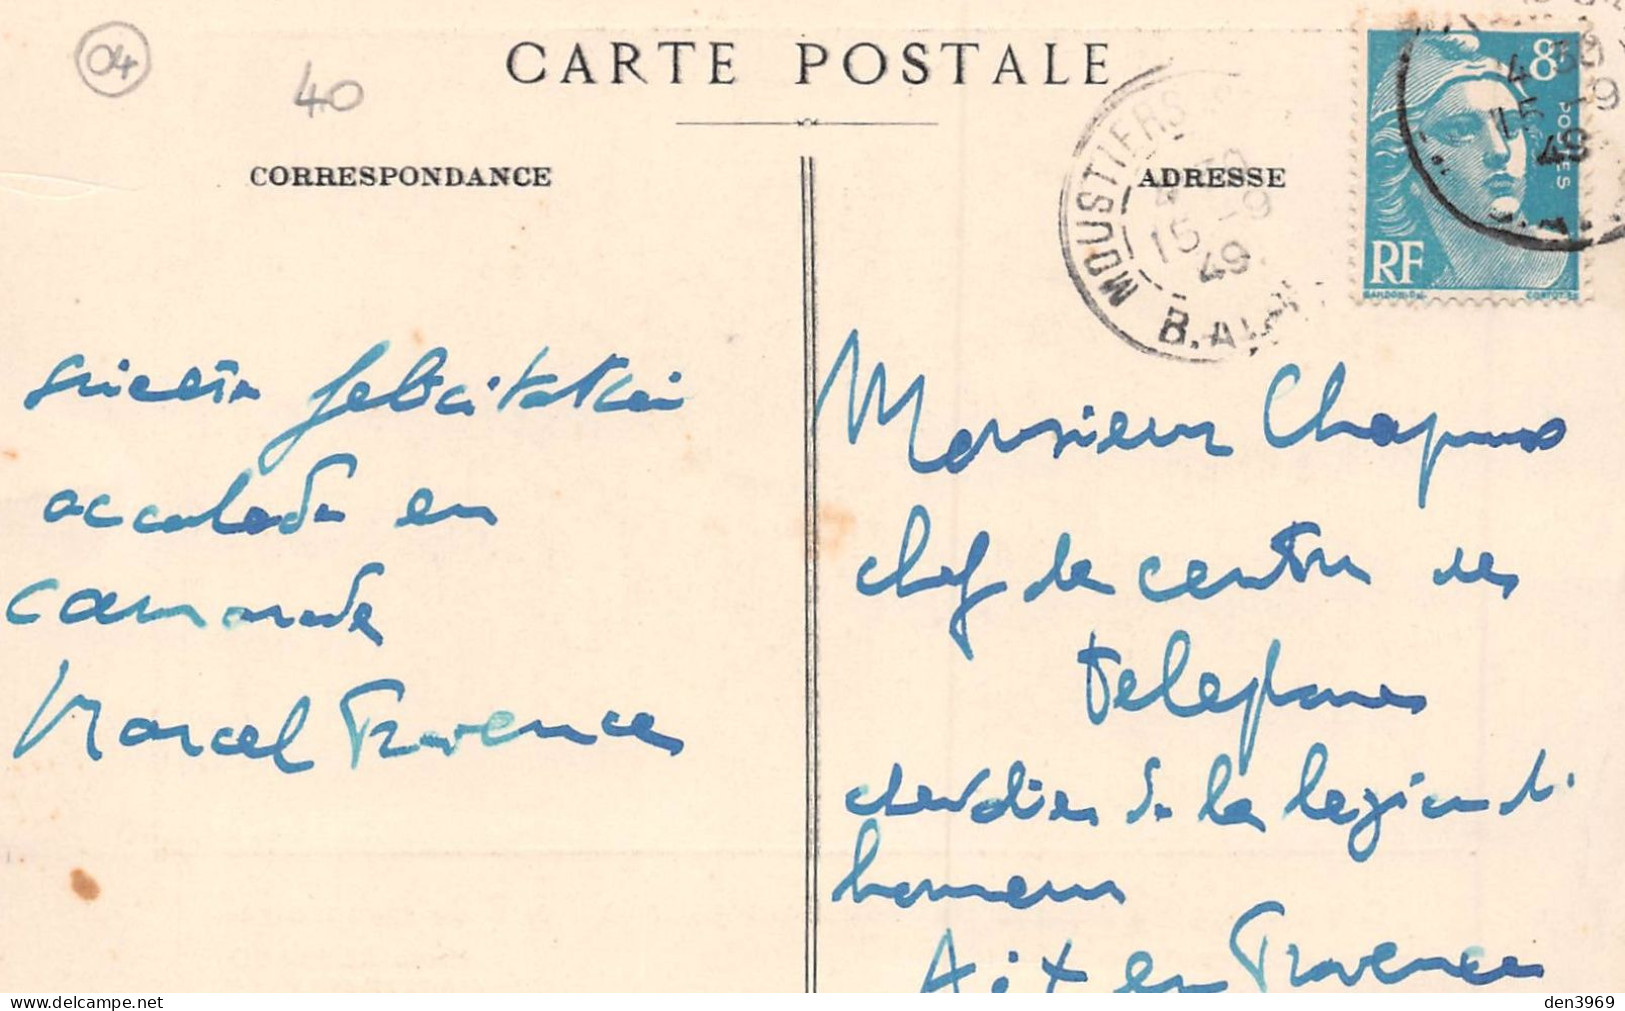 04
40
CARTE POSTALE
CORRESPONDANCE
ADRESSE
MOUSTIERS
15 -9
49
B. ALPES
8F
POSTES
RF
4 30
15 -9
49
félicitation
accolade en
camarade
Marcel Provence
Monsieur Chapus
chef de centre des
Telephones
chevalier de la legion d.
honneur
Aix en Provence
www.delcampe.net
den3969